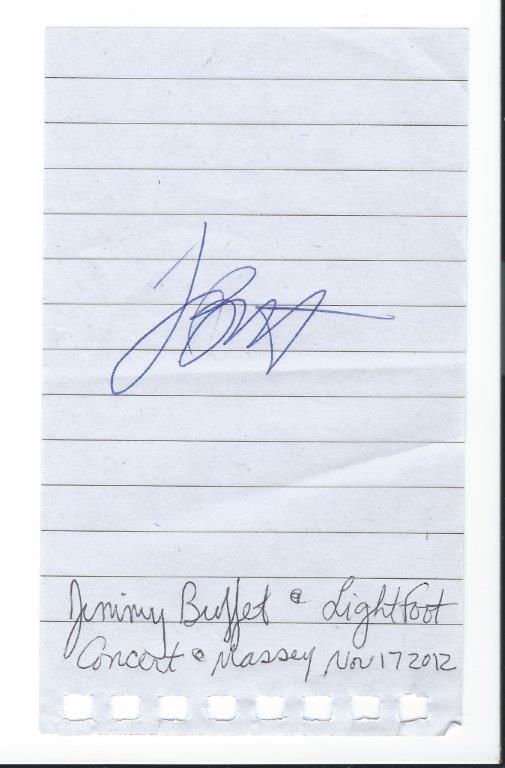 JBufft
Jimmy Buffet @ Lightfoot
Concert @ Massey Nov 17 2012